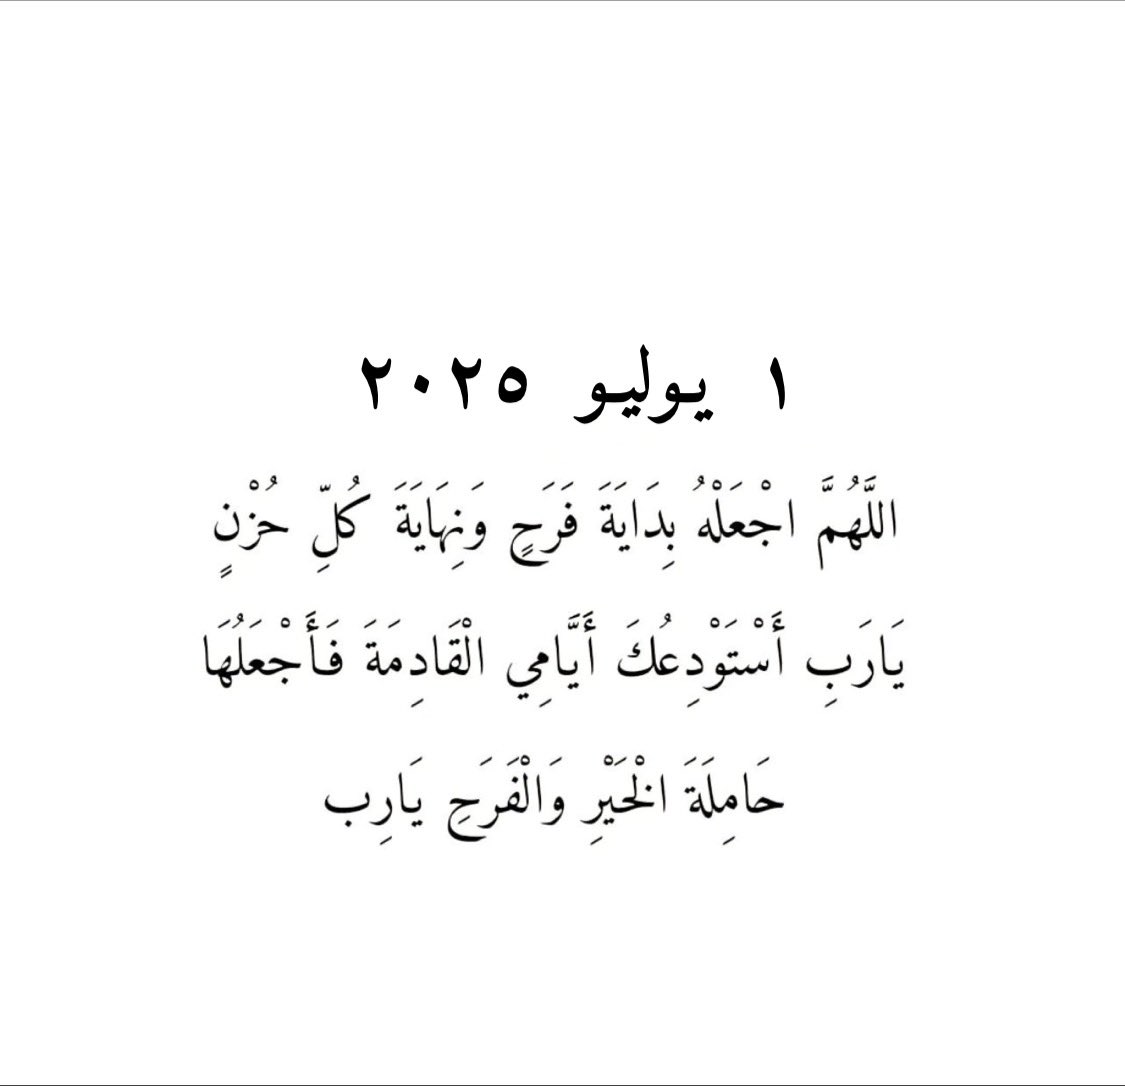 ١ يوليو ٢٠٢٥
اللَّهُمَّ اجْعَلْهُ بِدَايَةَ فَرَحٍ وَنِهَايَةَ كُلِّ حُزْنٍ
يَارَبِ أَسْتَوْدِعُكَ أَيَّامِي الْقَادِمَةَ فَأَجْعَلُهَا
حَامِلَةَ الْخَيْرِ وَالْفَرَحِ يَارِب